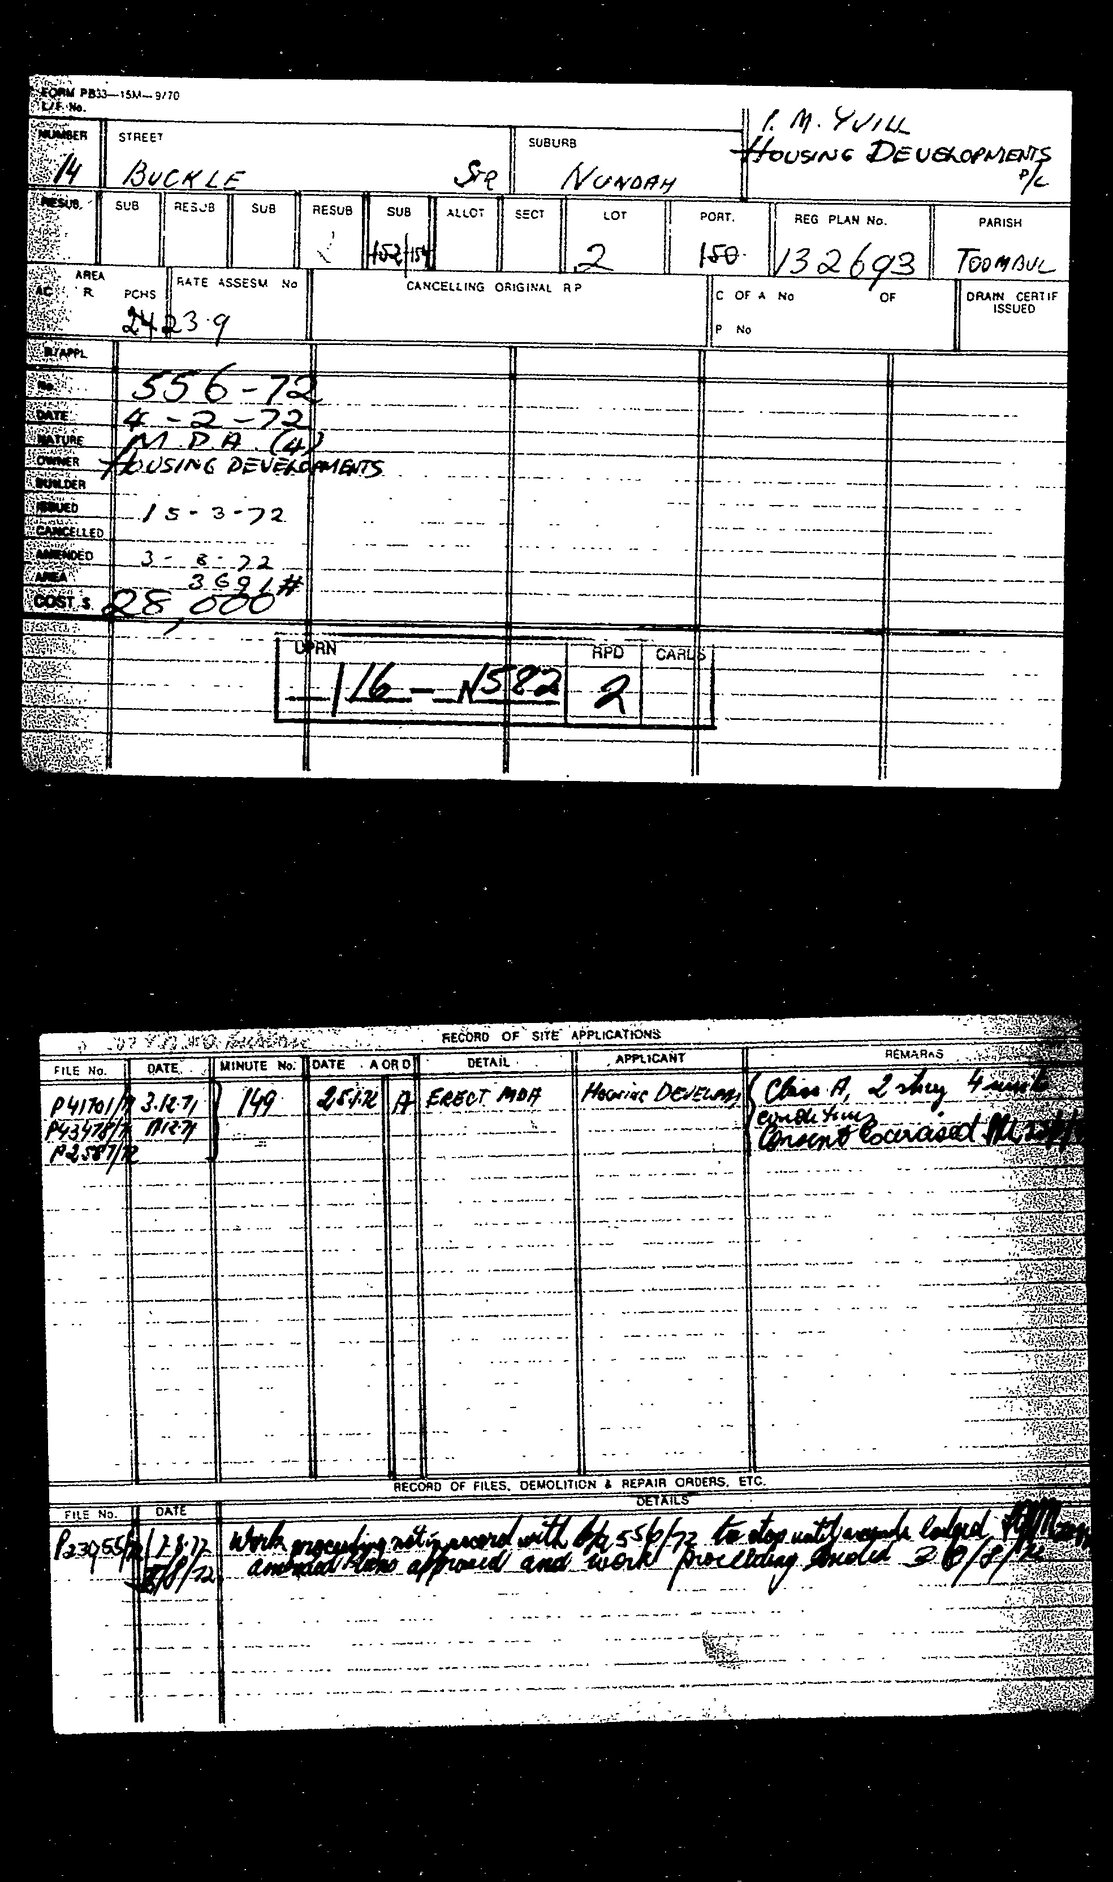 FORM PB33—15M—9/70
L/F No.
P. M. YUILL
HOUSING DEVELOPMENTS
P/L
NUMBER STREET SUBURB
14 BUCKLE STR NUNDAH
RESUB. SUB RESUB SUB RESUB SUB ALLOT SECT LOT PORT. REG PLAN No. PARISH
152/154 2 150 132693 TOOMBUL
AREA RATE ASSESM No CANCELLING ORIGINAL R P C OF A No OF DRAIN CERTIF ISSUED
AC R PCHS
P No
24 23.9
B/APPL
No. 556-72
DATE 4-2-72
NATURE M.D.A. (4)
OWNER HOUSING DEVELOPMENTS
BUILDER
ISSUED 15-3-72
CANCELLED
AMENDED 3-8-72
AREA 3691 #
COST $ 28,000
UPRN RPD CARDS
116 - N582 2
RECORD OF SITE APPLICATIONS
FILE No. DATE MINUTE No. DATE A OR D DETAIL APPLICANT REMARKS
P41701/71 3.12.71 149 25.1.72 A ERECT MDA HOUSING DEVELOPM Class A, 2 storey 4 units
P43478/71 conditions
P2587/72 Consent Exercised
RECORD OF FILES, DEMOLITION & REPAIR ORDERS, ETC.
FILE No. DATE DETAILS
P23955/72 1.28.72 Work proceeding not in accord with b/a 556/72 to stop until amends lodged
/8/72 amended plans approved and work proceeding